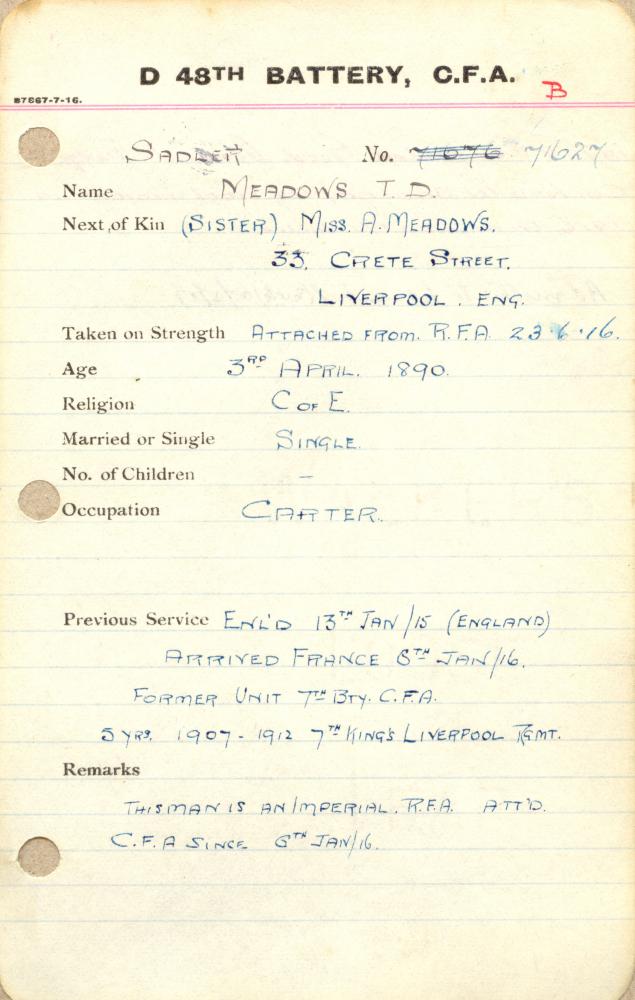 D 48TH BATTERY, C.F.A.
B
B7867-7-16.
SADLER No. 71676 71627
Name MEADOWS. T. D.
Next of Kin (SISTER) MISS. A. MEADOWS.
33. CRETE STREET.
LIVERPOOL. ENG.
Taken on Strength ATTACHED FROM. R.F.A. 23.6.16.
Age 3RD APRIL. 1890.
Religion C OF E.
Married or Single SINGLE.
No. of Children –
Occupation CARTER.
Previous Service ENL'D 13TH JAN/15 (ENGLAND)
ARRIVED FRANCE 6TH JAN/16.
FORMER UNIT 7TH BTY. C.F.A.
5 YRS. 1907-1912 7TH KING'S LIVERPOOL RGMT.
Remarks
THIS MAN IS AN IMPERIAL. R.F.A. ATT'D.
C.F.A SINCE 6TH JAN/16.